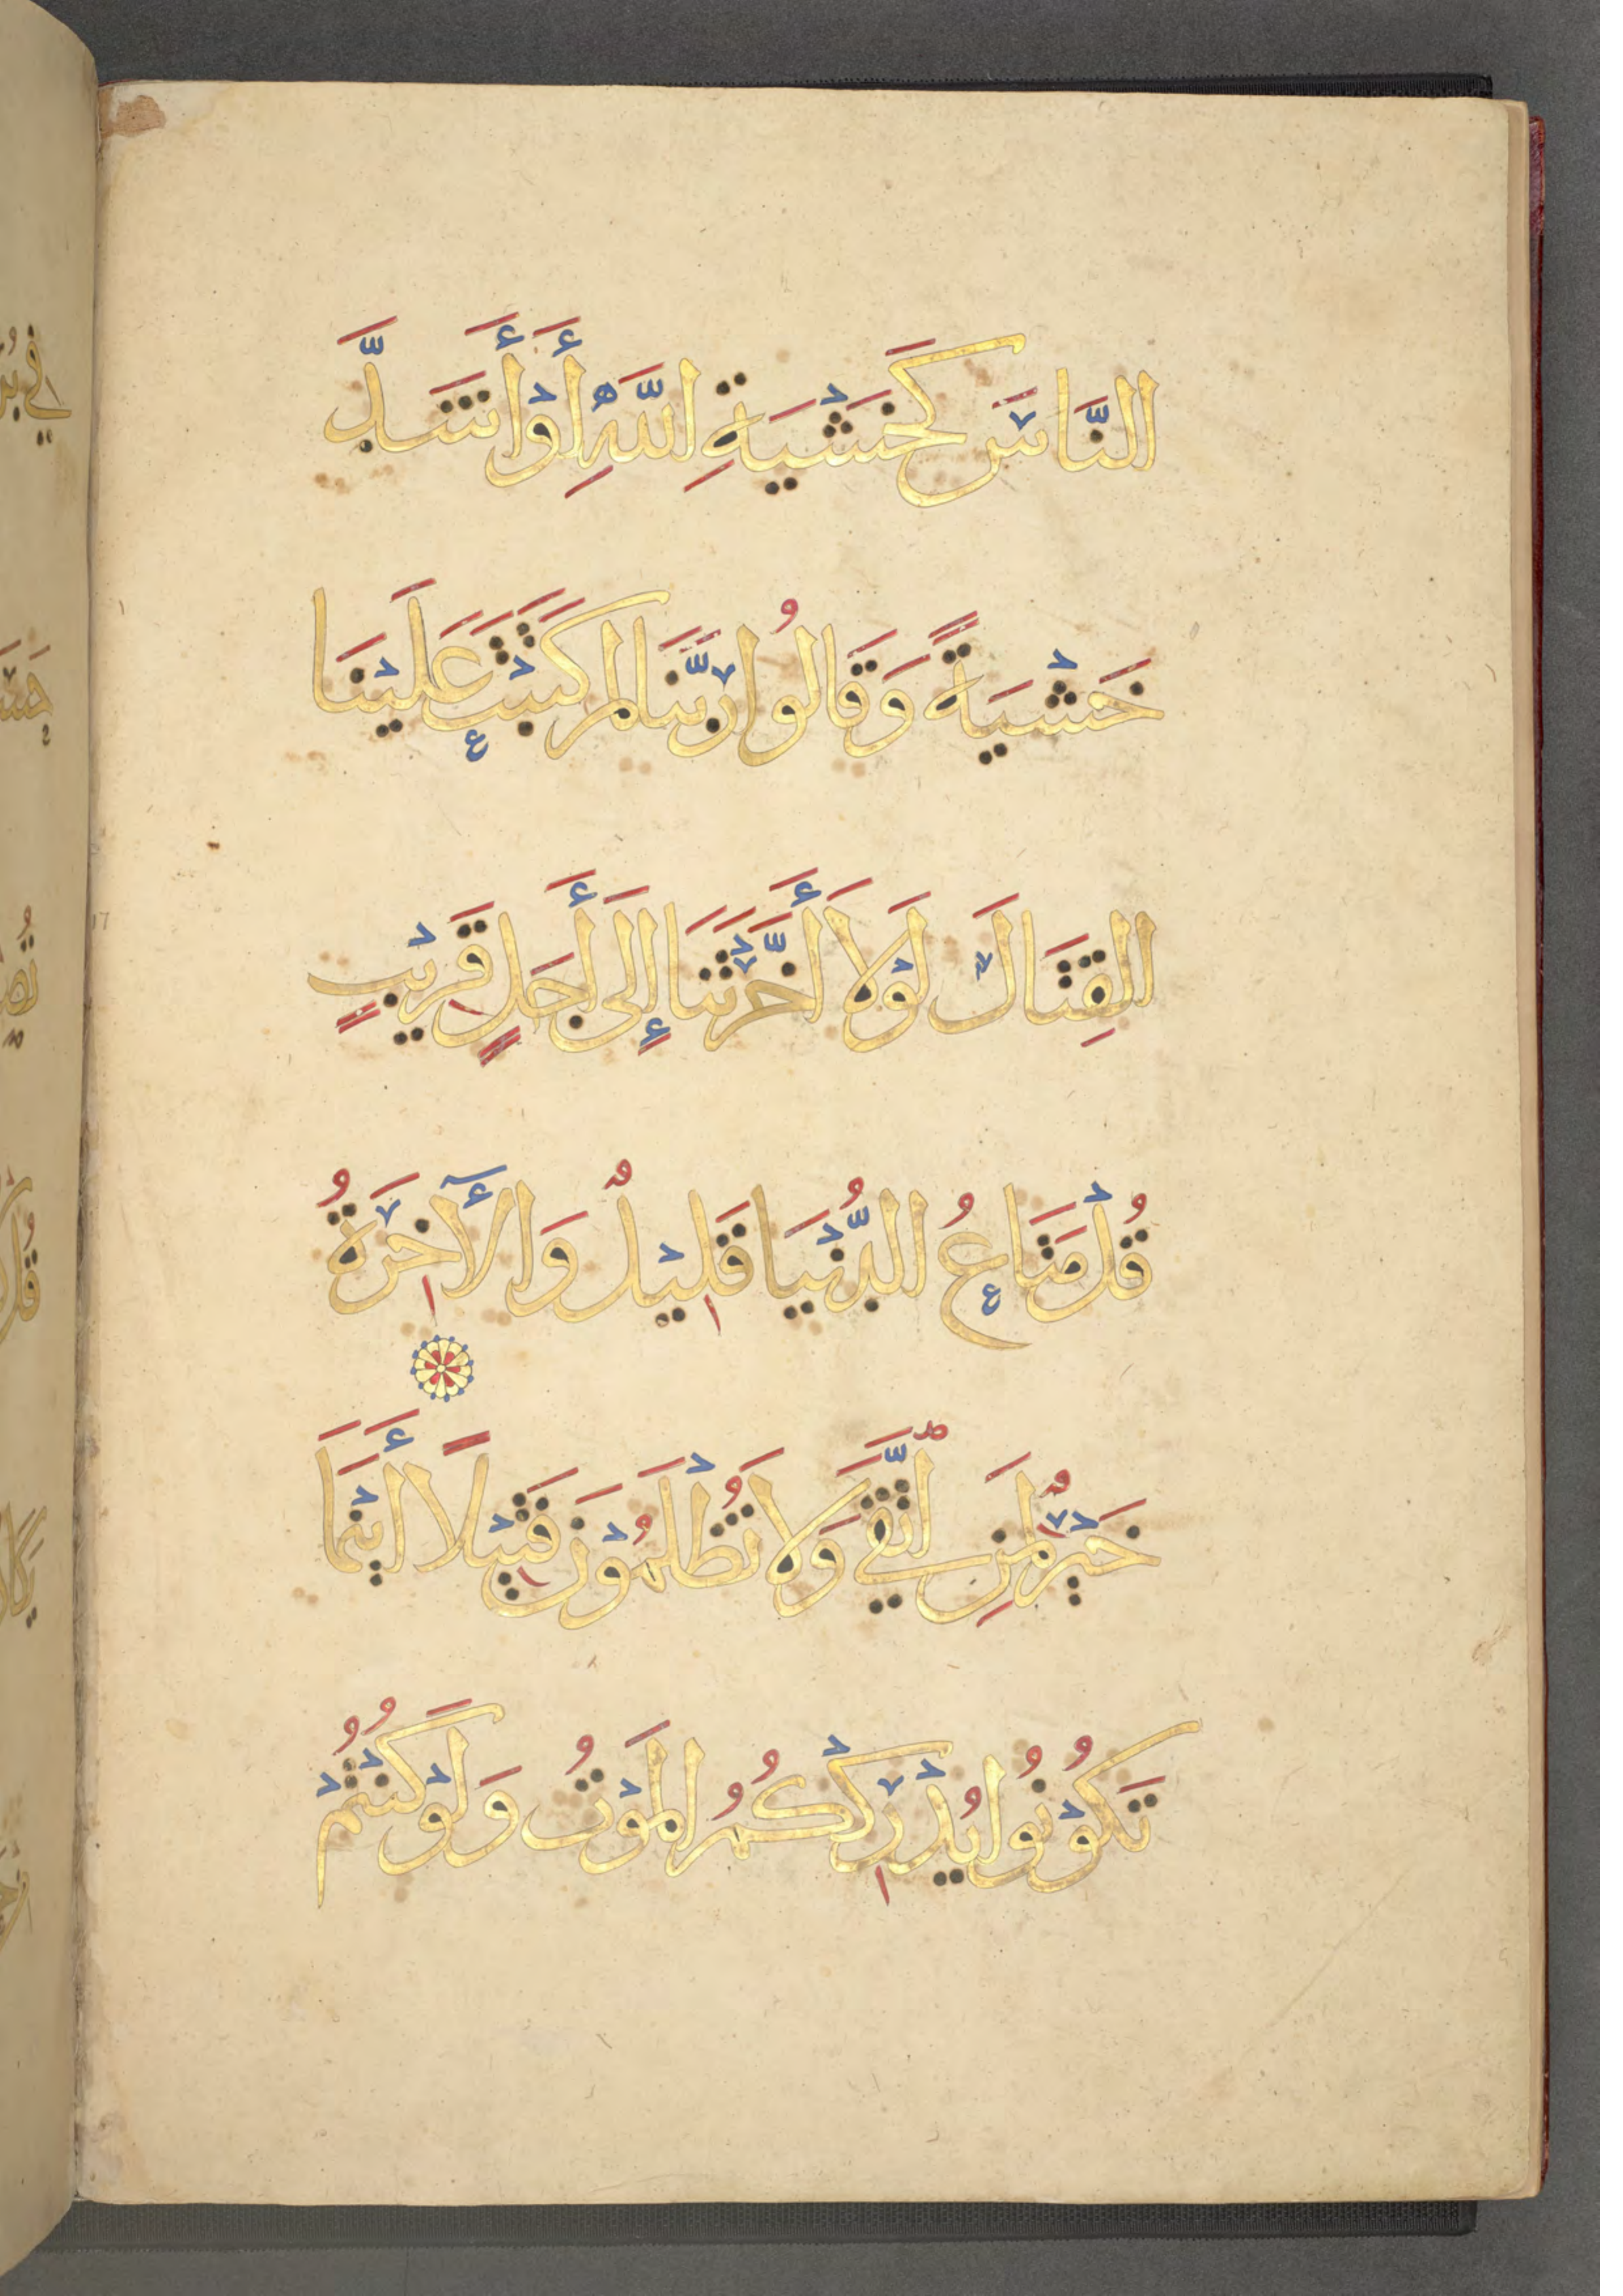 النَّاسَ كَخَشْيَةِ اللَّهِ أَوْ أَشَدَّ
خَشْيَةً وَقَالُوا رَبَّنَا لِمَ كَتَبْتَ عَلَيْنَا
القِتَالَ لَوْلَا أَخَّرْتَنَا إِلَى أَجَلٍ قَرِيْبٍ
قُلْ مَتَاعُ الدُّنْيَا قَلِيْلٌ وَالْأَخِرَةُ
خَيْرٌ لِمَنِ اتَّقَى وَلَا تُظْلَمُوْنَ فَتِيْلًا أَيْنَمَا
تَكُوْنُوا يُدْرِكْكُمُ المَوْتُ وَلَوْ كُنْتُمْ